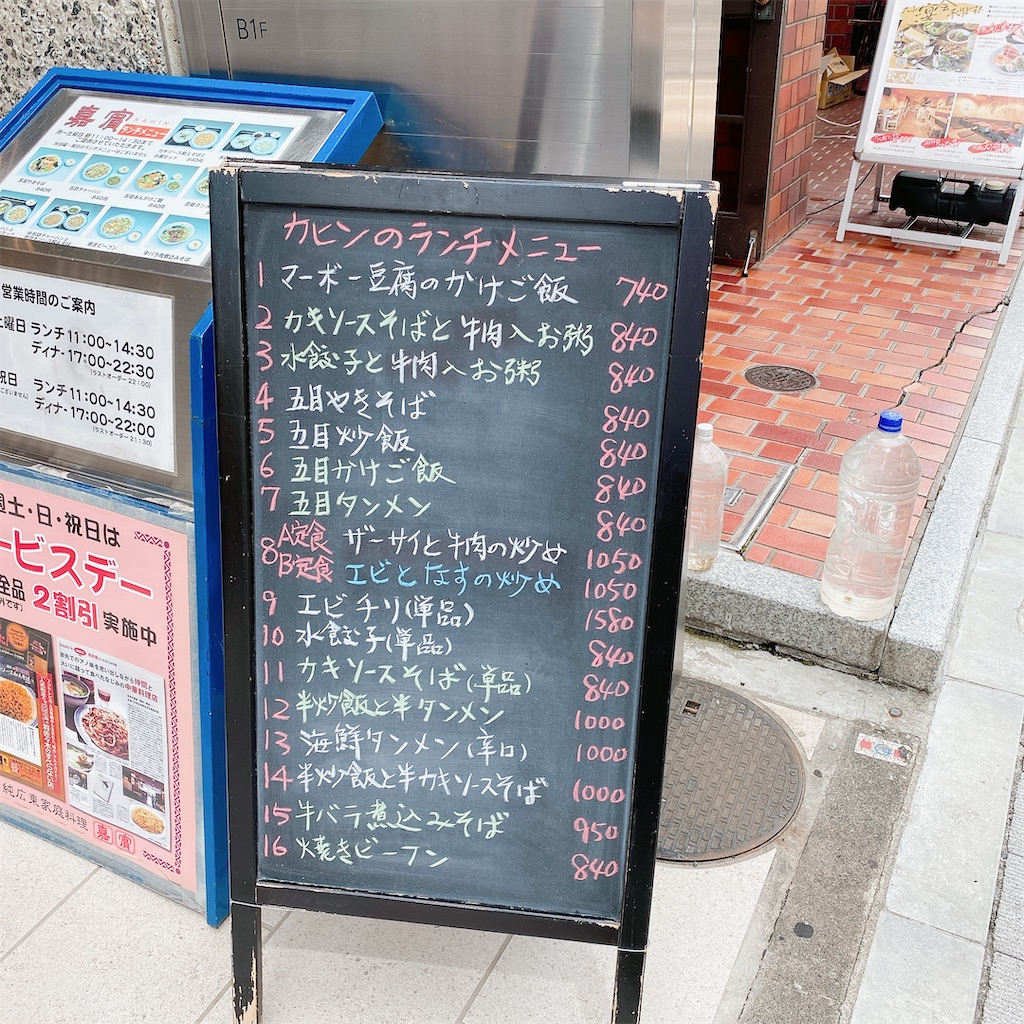 B1F
嘉賓 KAHIN
ランチメニュー
営業時間のご案内
土曜日 ランチ 11:00~14:30
ディナー 17:00~22:30
(ラストオーダー 22:00)
祝日 ランチ 11:00~14:30
ディナー 17:00~22:00
(ラストオーダー 21:30)
週土・日・祝日は
ービスデー
全品 2割引 実施中
純広東家庭料理 嘉賓
カヒンのランチメニュー
1 マーボー豆腐のかけご飯 740
2 カキソースそばと牛肉入お粥 840
3 水餃子と牛肉入お粥 840
4 五目やきそば 840
5 五目炒飯 840
6 五目かけご飯 840
7 五目タンメン 840
8 A定食 ザーサイと牛肉の炒め 1050
B定食 エビとなすの炒め 1050
9 エビチリ(単品) 1580
10 水餃子(単品) 840
11 カキソースそば(単品) 840
12 半炒飯と半タンメン 1000
13 海鮮タンメン(辛口) 1000
14 半炒飯と半カキソースそば 1000
15 牛バラ煮込みそば 950
16 焼きビーフン 840